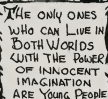 THE ONLY ONES
WHO CAN LIVE IN
BOTH WORLDS
WITH THE POWER
OF INNOCENT
IMAGINATION
ARE YOUNG PEOPLE